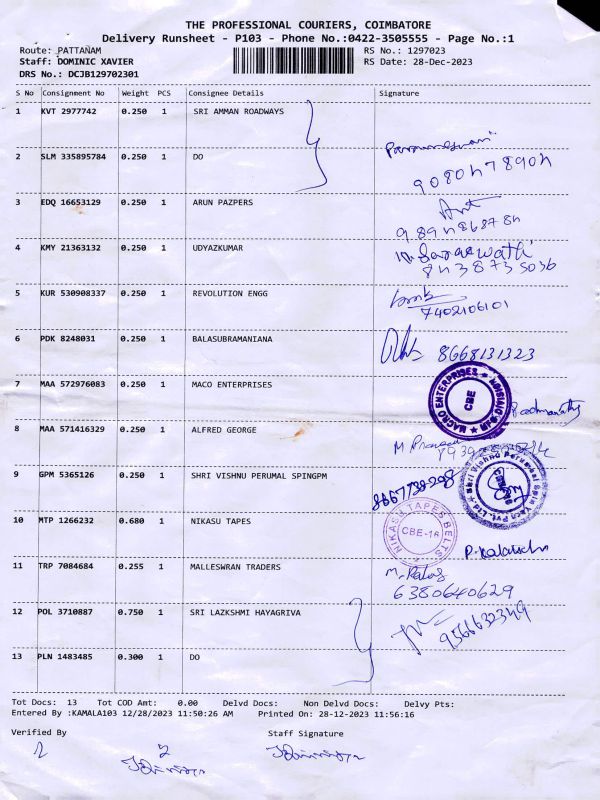 THE PROFESSIONAL COURIERS, COIMBATORE
Delivery Runsheet - P103 - Phone No.:0422-3505555 - Page No.:1
Route: PATTANAM RS No.: 1297023
Staff: DOMINIC XAVIER RS Date: 28-Dec-2023
DRS No.: DCJB129702301
S No Consignment No Weight PCS Consignee Details Signature
1 KVT 2977742 0.250 1 SRI AMMAN ROADWAYS
2 SLM 335895784 0.250 1 DO
3 EDQ 16653129 0.250 1 ARUN PAZPERS
4 KMY 21363132 0.250 1 UDYAZKUMAR
Saraswathi
8438735036
5 KUR 530908337 0.250 1 REVOLUTION ENGG
7402106101
6 PDK 8248031 0.250 1 BALASUBRAMANIANA
8668131323
7 MAA 572976083 0.250 1 MACO ENTERPRISES
MACRO ENTERPRISES
CBE
8 MAA 571416329 0.250 1 ALFRED GEORGE
9 GPM 5365126 0.250 1 SHRI VISHNU PERUMAL SPINGPM
10 MTP 1266232 0.680 1 NIKASU TAPES
NIKASH TAPES BELTS
CBE-16
11 TRP 7084684 0.255 1 MALLESWRAN TRADERS
6380640629
12 POL 3710887 0.750 1 SRI LAZKSHMI HAYAGRIVA
9566632349
13 PLN 1483485 0.300 1 DO
Tot Docs: 13 Tot COD Amt: 0.00 Delvd Docs: Non Delvd Docs: Delvy Pts:
Entered By :KAMALA103 12/28/2023 11:50:26 AM Printed On: 28-12-2023 11:56:16
Verified By Staff Signature